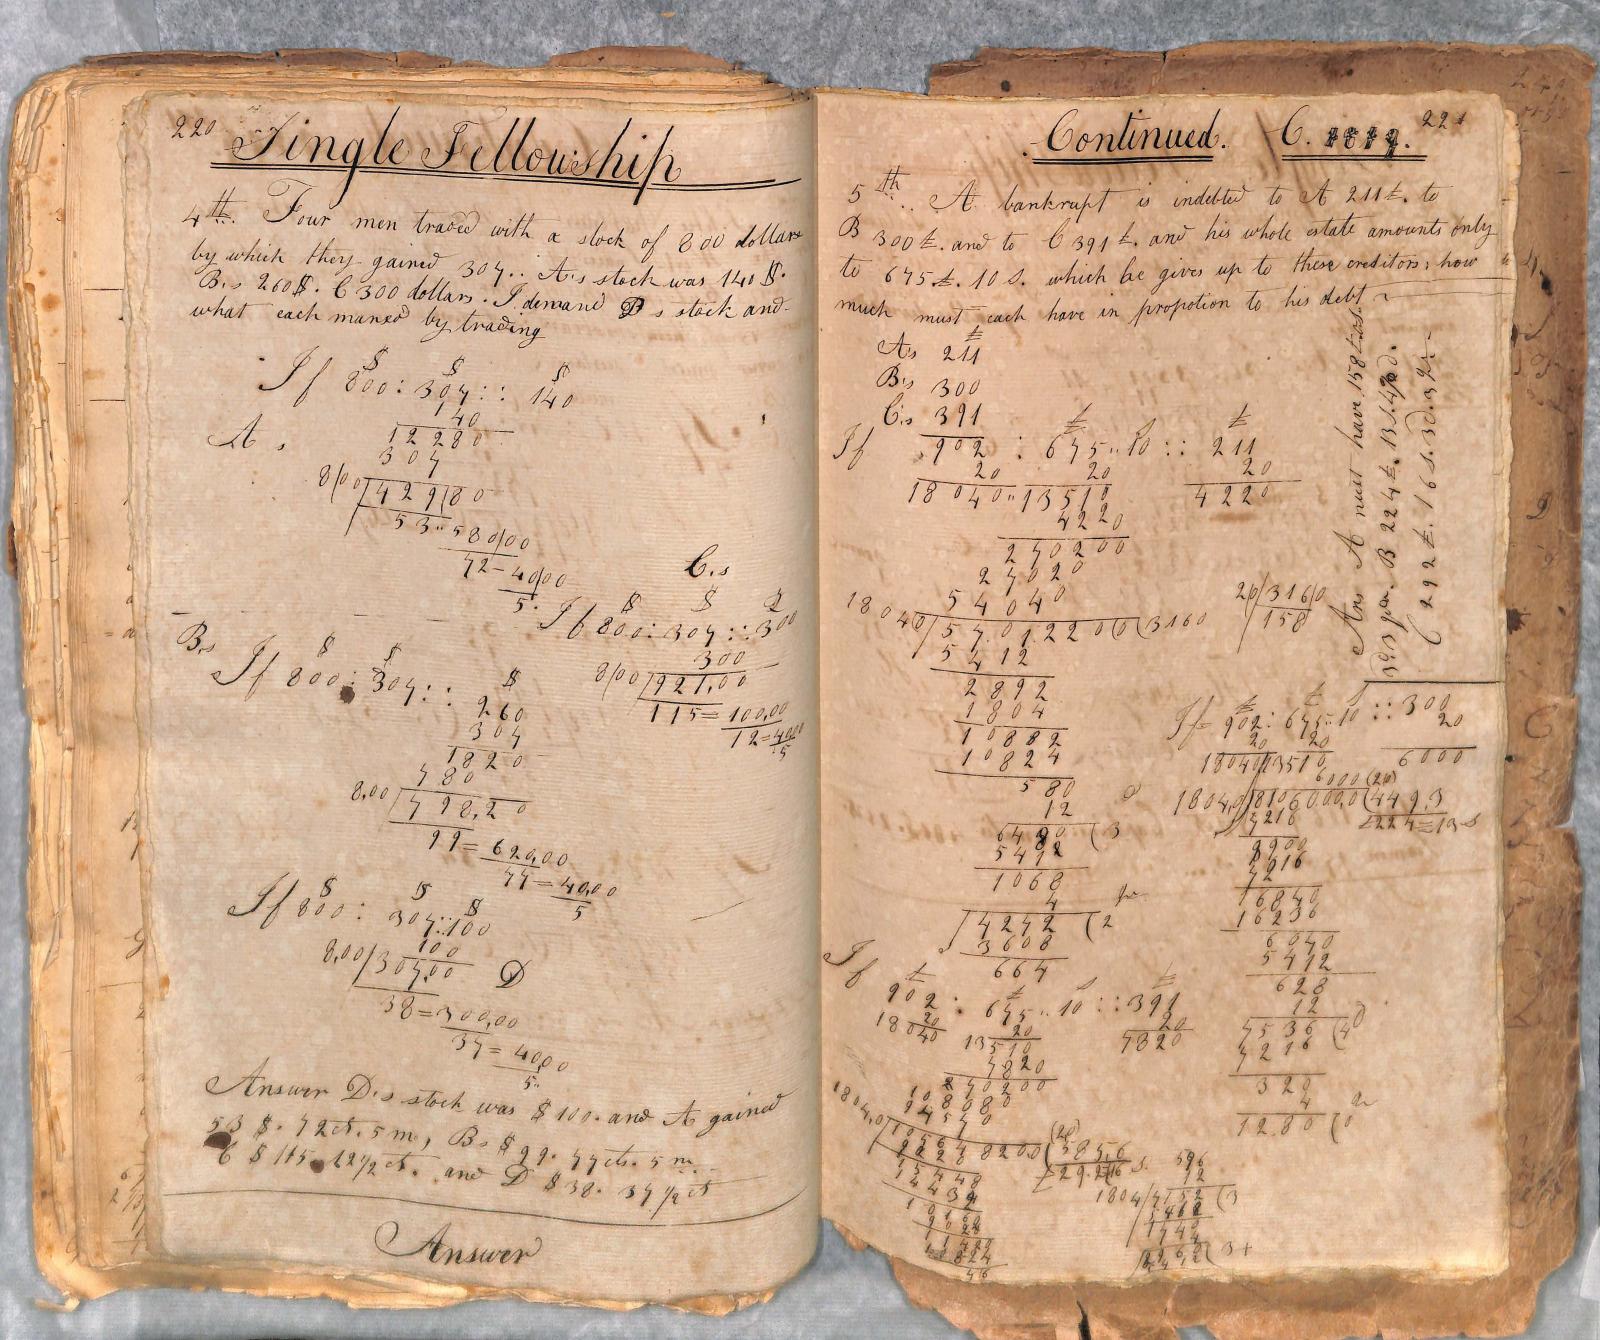 220
Single Fellowship
4th. Four men traded with a stock of 800 dollars
by which they gained 307.. A's stock was 140 $.
B,s 260$. C 300 dollars. I demand D s stock and
what each maned by trading
$ $ $
If 800: 307:: 140
140
A s
12280
307
8/00/429/80
53..580/00
72-40/00
5.
B,s
$ $
If 800: 307::
$
260
307
1820
780
8,00/798,20
99=620,00
77=40,00
5
C,s
$ $
If 800: 307::300
300
8/00/921,00
115=100,00
12=40,00
5
$ $ $
If 800: 307::100
100
8,00/307,00 D
38=300,00
37=40,00
5..
Answer D's stock was $100. and A gained
53 $. 72ct. 5m, B, $99. 77cts. 5 m.
C $115. 12 1/2 ct. and D $38. 37 1/2 ct
Answer
Continued. C. 1819. 221
5th.. A bankrupt is indebted to A 211£. to
B 300£. and to C 391£. and his whole estate amounts only
to 675£. 10 s. which he gives up to these creditors; how
much must each have in propotion to his debt
£
A's 211
B,s 300
C,s 391
£ s £
If 902 : 675..10 :: 211
20 20 20
18040..13510 4220
4220
270200
27020
54040
18040/57012200(3160
5412
2892
1804
10882
10824
580
12
6490(3
5412
1068
4 qr
4272(2
3608
664
20/3160
158
Ans A must have 158£.0s.
B 224£. 13s. 4d.
C 292£. 16s. 3d.
£ £ s
If 902: 675..10 :: 300
20 20 20
18040 13510 6000
6000 (20)
1804,0/8106000,0(4493
£224=13 s
7216
8900
7216
16840
16236
6040
5412
628
12
7536(4d
7216
320
4 qr
12.80(0
If
£ £ s £
902: 675..10 ::391
20 20 20
18040 13510 7820
7820
270200
108080
94570
1804,0/105648200(5856
(20)
£292=16 s.
9020
15448
14432
10162
9020
596
12
1804/7152(3
5412
1740
3+